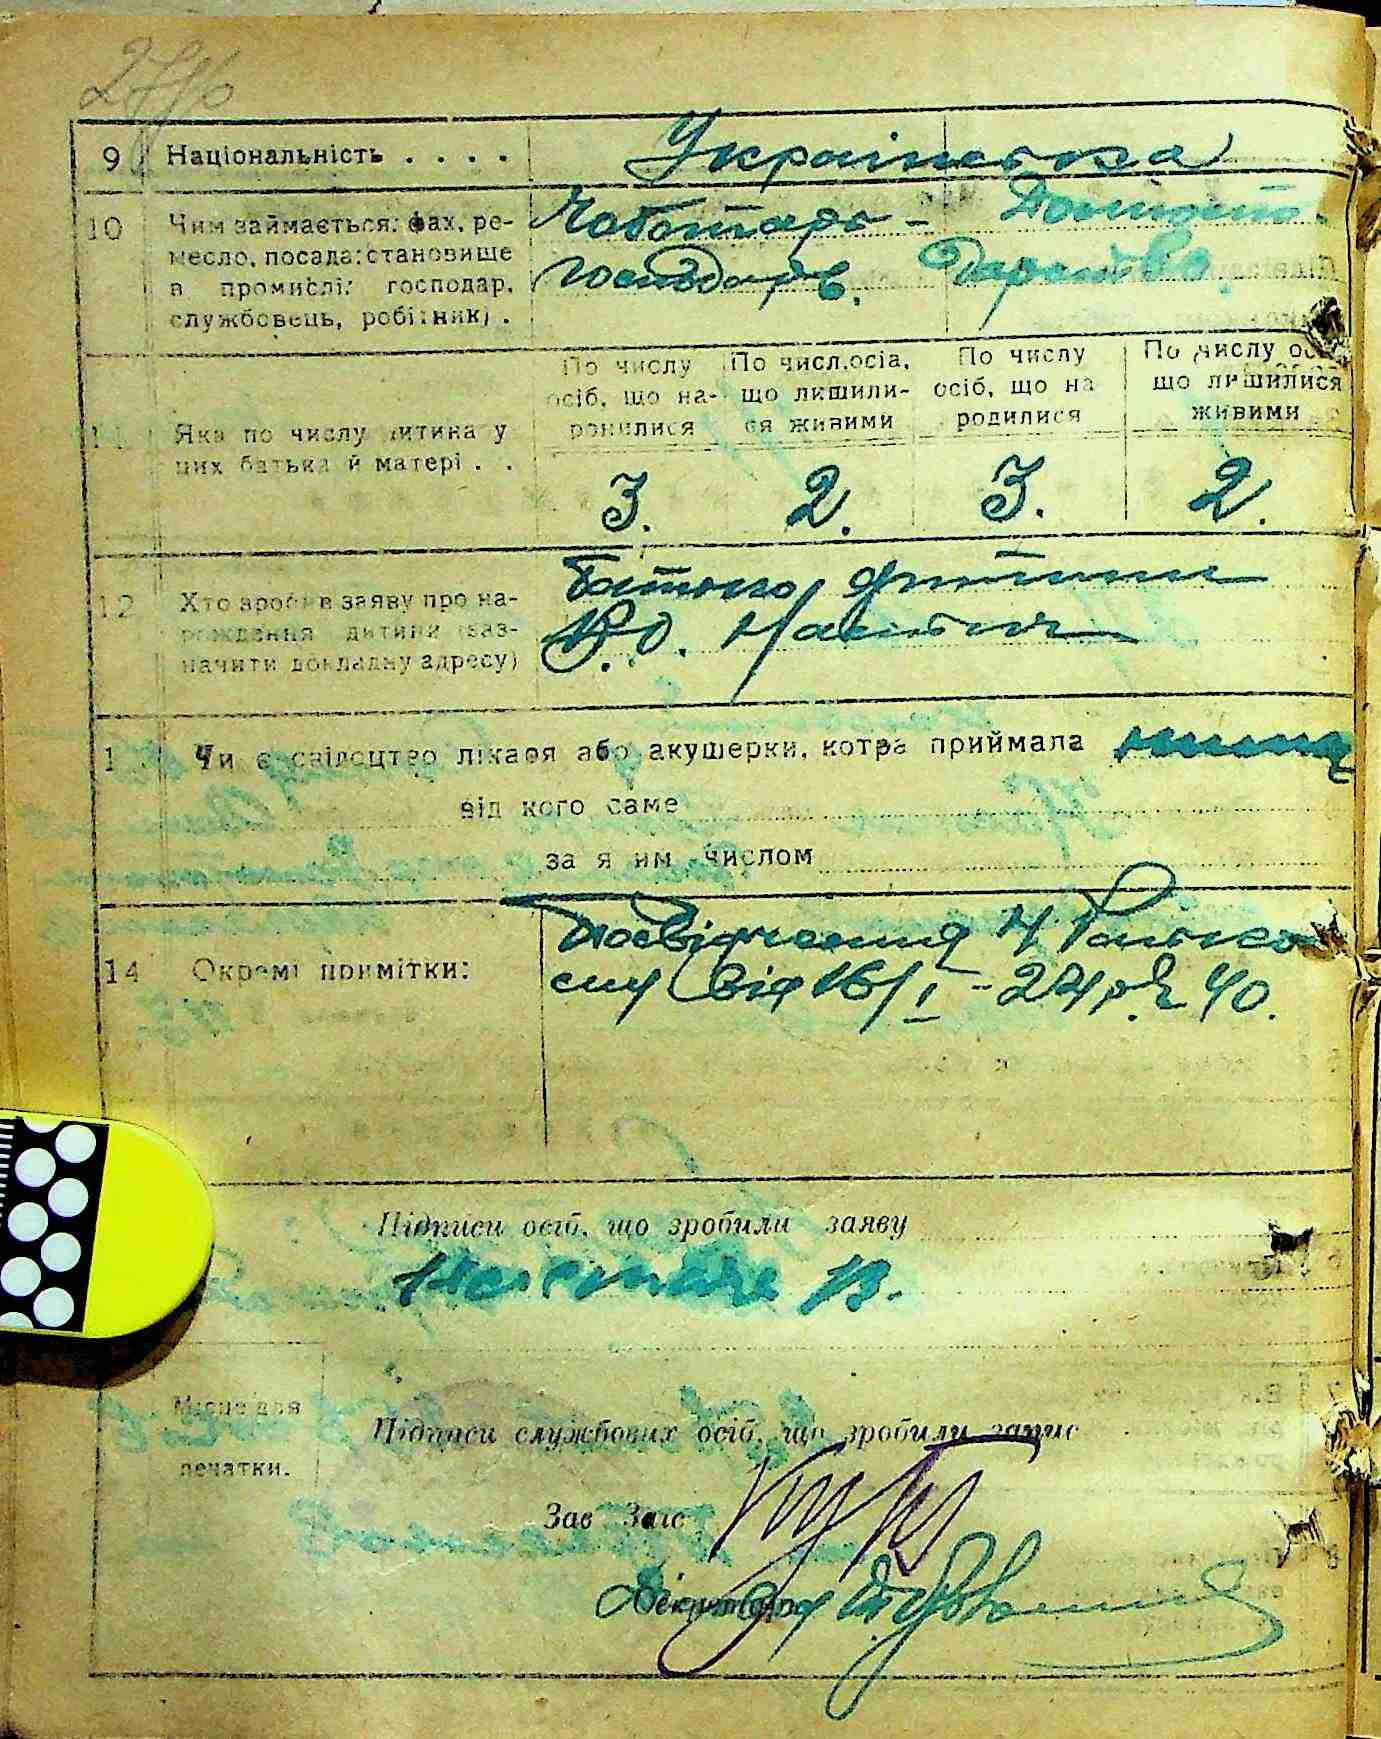 9 Національність . . . . Українська
10 Чим займається: фах, ре-
месло, посада: становище
в промислі: господар,
службовець, робітник) .
Чоботарь - Домгосп-
господарь. дарство.
По числу осіб, що народилися
По числ.осіб, що лишилися живими
По числу осіб, що народилися
По числу осіб що лишилися живими
11 Яка по числу дитина у
цих батька й матері . .
3. 2. 3. 2.
12 Хто зробив заяву про на-
рождення дитини (заз-
начити докладну адресу)
Батько дитини
В.О.
1 Чи є свідоцтво лікаря або акушерки, котра приймала нима
від кого саме
за яким числом
14 Окремі примітки:
Посвідчення
від 16/I - 24 р. № 40.
Підписи осіб, що зробили заяву
В.
Місце для
печатки.
Підписи службових осіб, що зробили запис
Зав Загс
Діловод